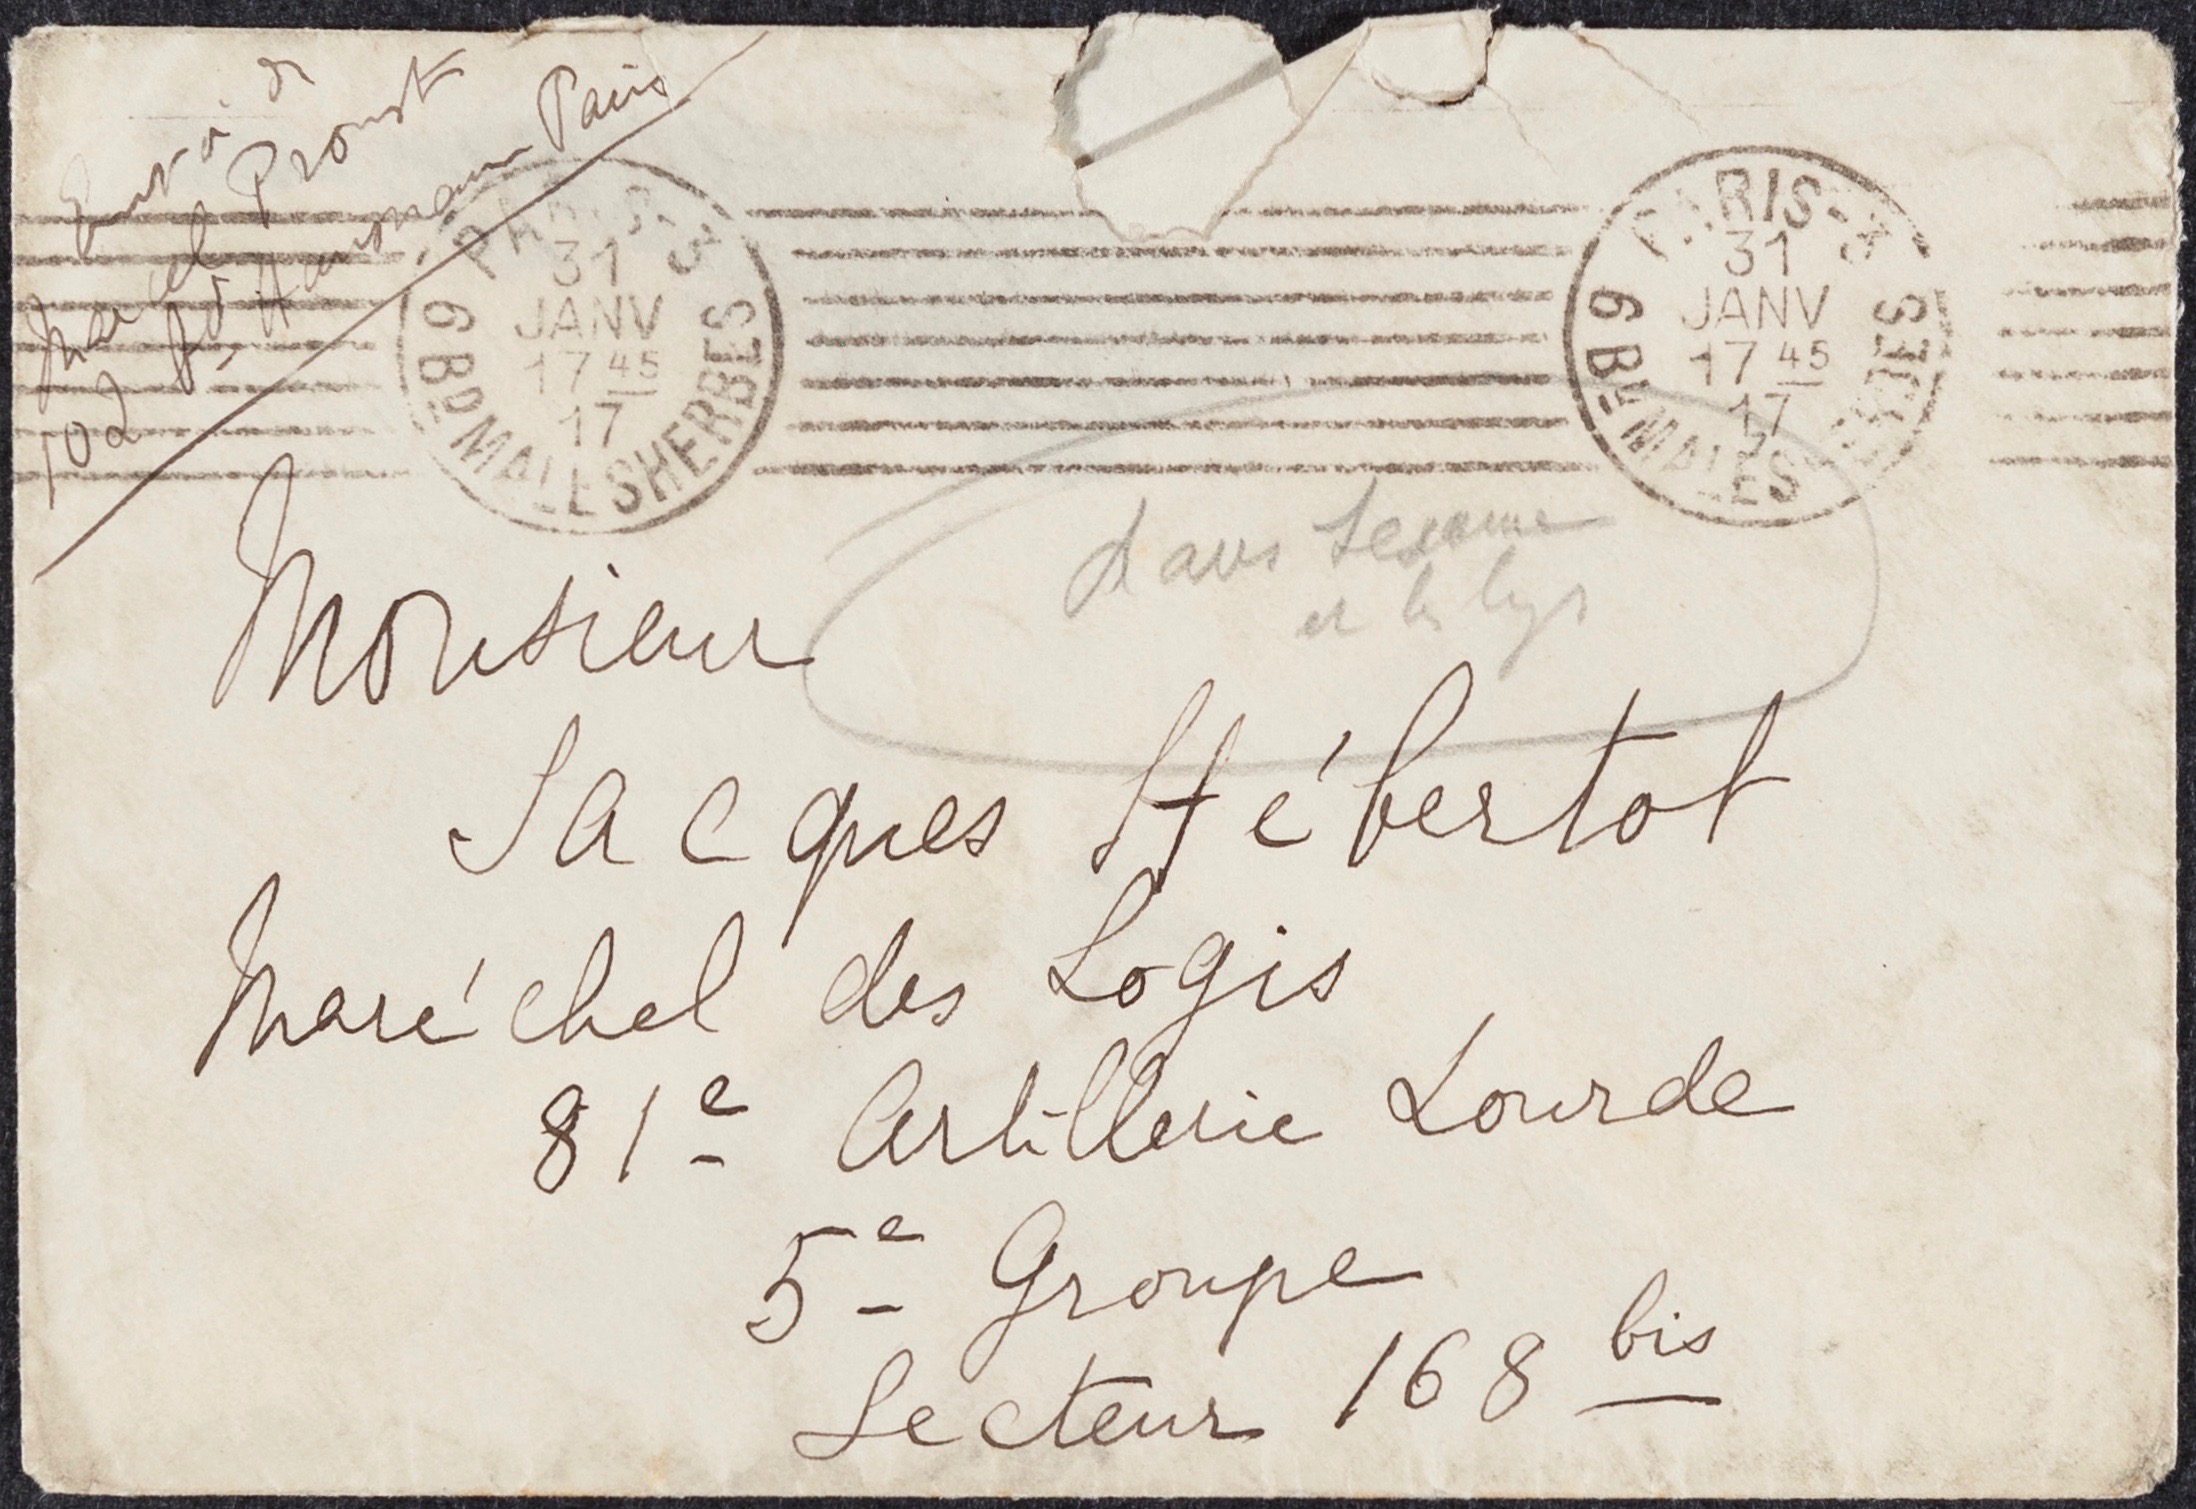 Envoi de
Marcel Proust
102 Bd Haussmann Paris
PARIS 3
31
JANV
17 45
17
6 Bd MALESHERBES
PARIS - 3
31
JANV
17 45
17
6 Bd MALESHERBES
dans Sesame
et les lys
Monsieur
Jacques Hébertot
Maréchal des Logis
81e Artillerie Lourde
5e Groupe
Secteur 168 bis